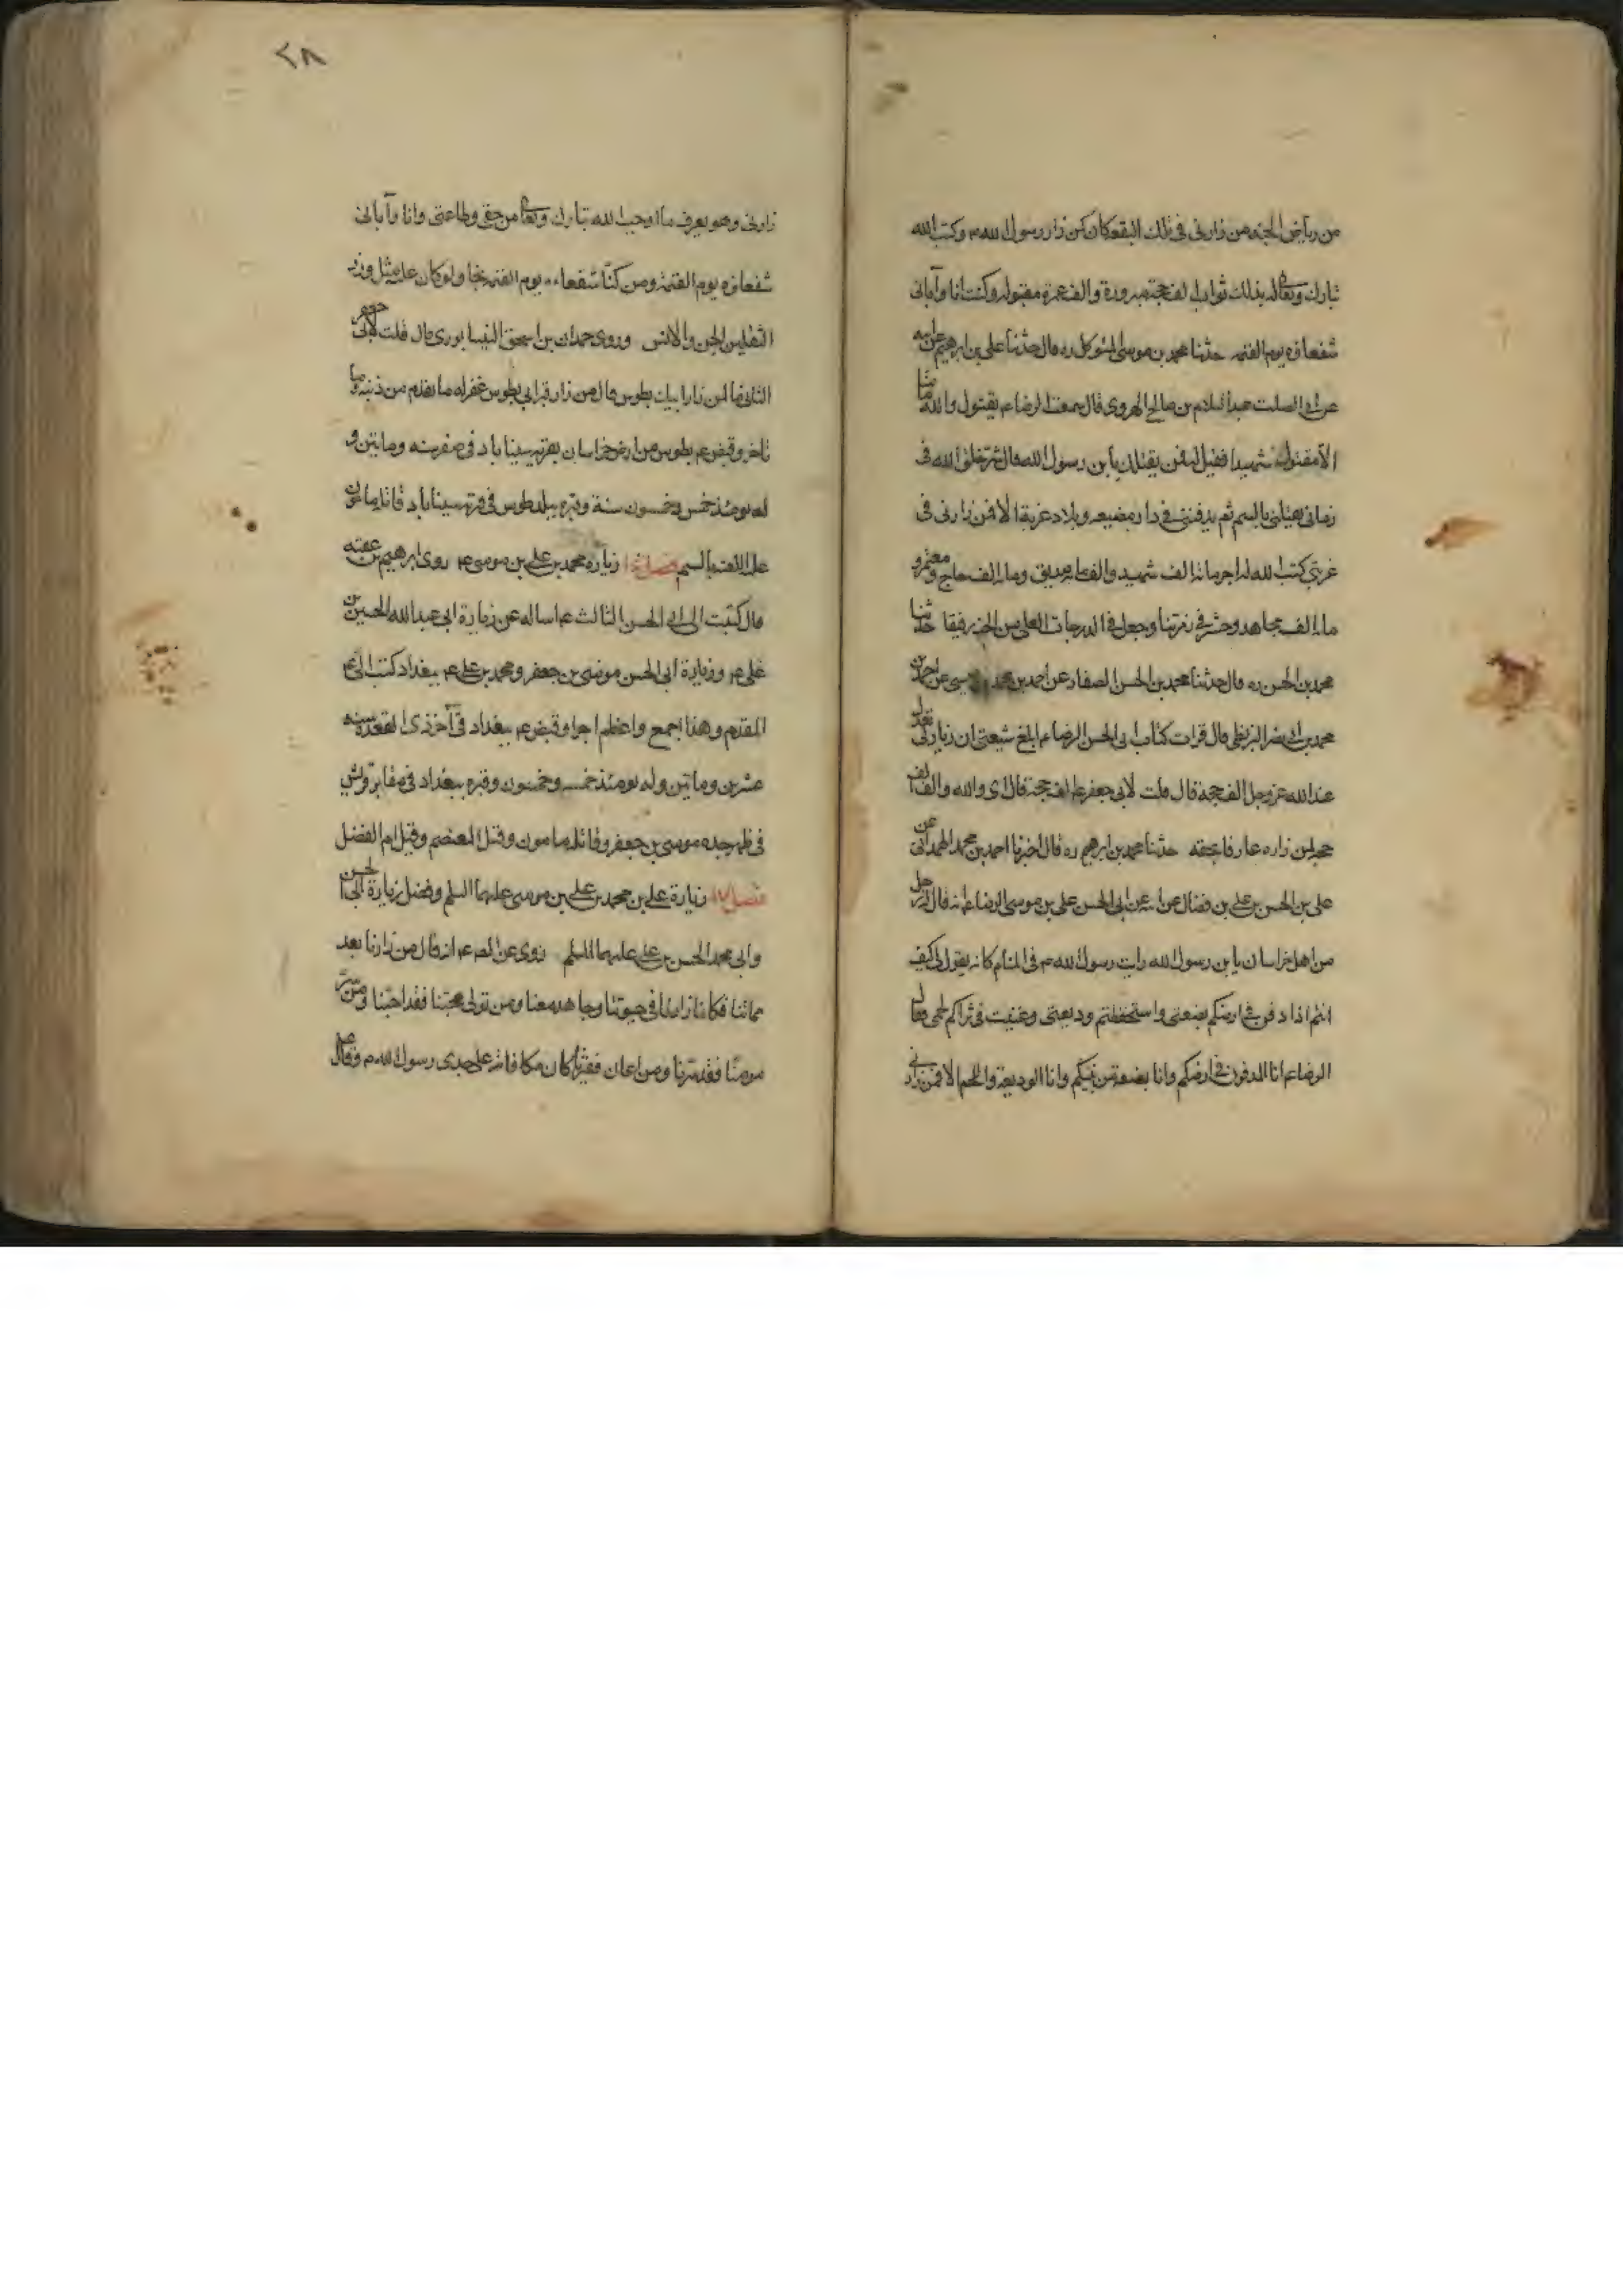 من رياض الجنه من زارنى فى تلك البقعه كان كمن زار رسول الله ص وكتب الله
تبارك وتعالى له بذلك ثواب الف حجة مبرورة والف عمرة مقبوله وكنت انا وآبائى
شفعاؤه يوم القيمه حدثنا محمد بن موسى المتوكل ره قال حدثنا على بن ابرهيم عن ابيه
عن ابى الصلت عبد السلام بن صالح الهروى قال سمعت الرضا ع يقول والله ما منا
الا مقتول شهيد فقيل له فمن يقتلك يا بن رسول الله قال شر خلق الله فى
زمانى يقتلنى بالسم ثم يدفننى فى دار مضيعه وبلاد غربة الا فمن زارنى فى
غربتى كتب الله له اجر مائة الف شهيد ومائة الف صديق ومائة الف حاج ومعتمر و
مائة الف مجاهد وحشر فى زمرتنا وجعل فى الدرجات العلى من الجنه رفيقنا حدثنا
محمد بن الحسن ره قال حدثنا محمد بن الحسن الصفار عن احمد بن محمد بن عيسى عن احمد بن
محمد بن ابى نصر البزنطى قال قرات كتاب ابى الحسن الرضا ع ابلغ شيعتى ان زيارتى تعدل
عند الله عز وجل الف حجة قال قلت لابى جعفر ع الف حجة قال اى والله والف الف
حجة لمن زاره عارفا بحقه حدثنا محمد بن ابرهيم ره قال اخبرنا احمد بن محمد الهمدانى عن
على بن الحسن بن على بن فضال عن ابيه عن ابى الحسن على بن موسى الرضا ع انه قال له رجل
من اهل خراسان يا بن رسول الله رايت رسول الله ص فى المنام كانه يقول لى كيف
انتم اذا دفن فى ارضكم بضعتى واستحفظتم وديعتى وغيبت فى ثراكم لحمى فقال
الرضا ع انا المدفون فى ارضكم وانا بضعة من نبيكم وانا الوديعة واللحم الا فمن زارنى
٢٨
زارنى وهو يعرف ما اوجب الله تبارك وتعالى من حقى وطاعتى وانا وآبائى
شفعاؤه يوم القيمة ومن كنا شفعاءه يوم القيمة نجا ولو كان عليه مثل وزر
الثقلين الجن والانس وروى حمدان بن اسحق النيسابورى قال قلت لابى جعفر
الثانى ما لمن زار ابيك بطوس قال من زار قبر ابى بطوس غفر له ما تقدم من ذنبه وما
تاخر وقبض ع بطوس من ارض خراسان بقرية سيناباد فى صفر سنه ومايتين و
له يومئذ خمس وخمسون سنة وقبره ببلد طوس فى قرية سيناباد قاتله مامون
عليه اللعنه بالسم فصل زيارة محمد بن على بن موسى ع روى ابرهيم بن عقبه
قال كتبت الى ابى الحسن الثالث ع اساله عن زيارة ابى عبد الله الحسين بن
على ع وزيارة ابى الحسن موسى بن جعفر ومحمد بن على ع ببغداد كتب الى ع
المقدم وهذا اجمع واعظم اجرا وقبض ع ببغداد فى آخر ذى القعدة سنه
عشرين ومايتين وله يومئذ خمسه وخمسون وقبره ببغداد فى مقابر قريش
فى ظهر جده موسى بن جعفر وقاتله مامون وقيل المعتصم وقيل ام الفضل
فصل زيارة على بن محمد بن على بن موسى عليهما السلم وفضل زيارة ابى الحسن
وابى محمد الحسن بن على عليهما السلم روى عن الص ع انه قال من زارنا بعد
مماتنا فكانما زارنا فى حيوتنا وجاهد معنا ومن تولى محبنا فقد احبنا ومن سر
مومنا فقد سرنا ومن اعان فقيرنا كان مكافاته على جدى رسول الله ص وقال ع